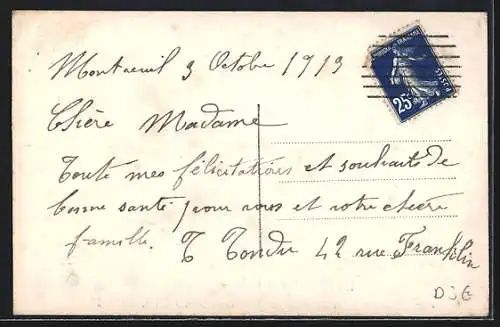 Montreuil 3 Octobre 1913
Chère Madame
Toute mes félicitations et souhaits de
bonne santé pour vous et votre chère
famille. T Tondu 42 rue Franklin
25
DJE